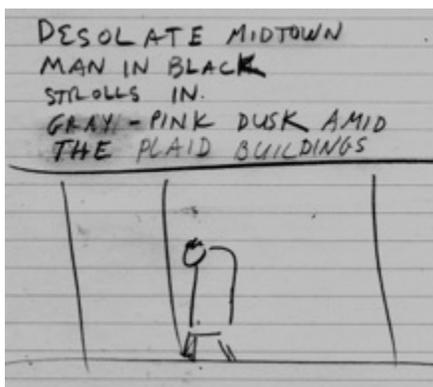 DESOLATE MIDTOWN
MAN IN BLACK
STROLLS IN.
GRAY-PINK DUSK AMID
THE PLAID BUILDINGS